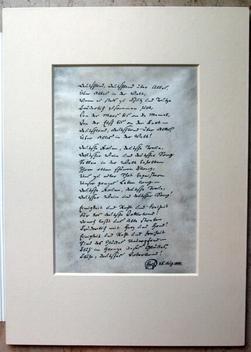 Deutschland, Deutschland über Alles,
Über Alles in der Welt,
Wenn es stets zu Schutz und Trutze
Brüderlich zusammen hält,
Von der Maas bis an die Memel,
Von der Etsch bis an den Belt —
Deutschland, Deutschland über Alles
Über Alles in der Welt!
Deutsche Frauen, deutsche Treue,
Deutscher Wein und deutscher Sang
Sollen in der Welt behalten
Ihren alten schönen Klang,
Uns zu edler That begeistern
Unser ganzes Leben lang —
Deutsche Frauen, deutsche Treue,
Deutscher Wein und deutscher Sang!
Einigkeit und Recht und Freiheit
Für das deutsche Vaterland!
Danach lasst uns Alle streben
Brüderlich mit Herz und Hand!
Einigkeit und Recht und Freiheit
Sind des Glückes Unterpfand —
Blüh im Glanze dieses Glückes,
Blühe, deutsches Vaterland!